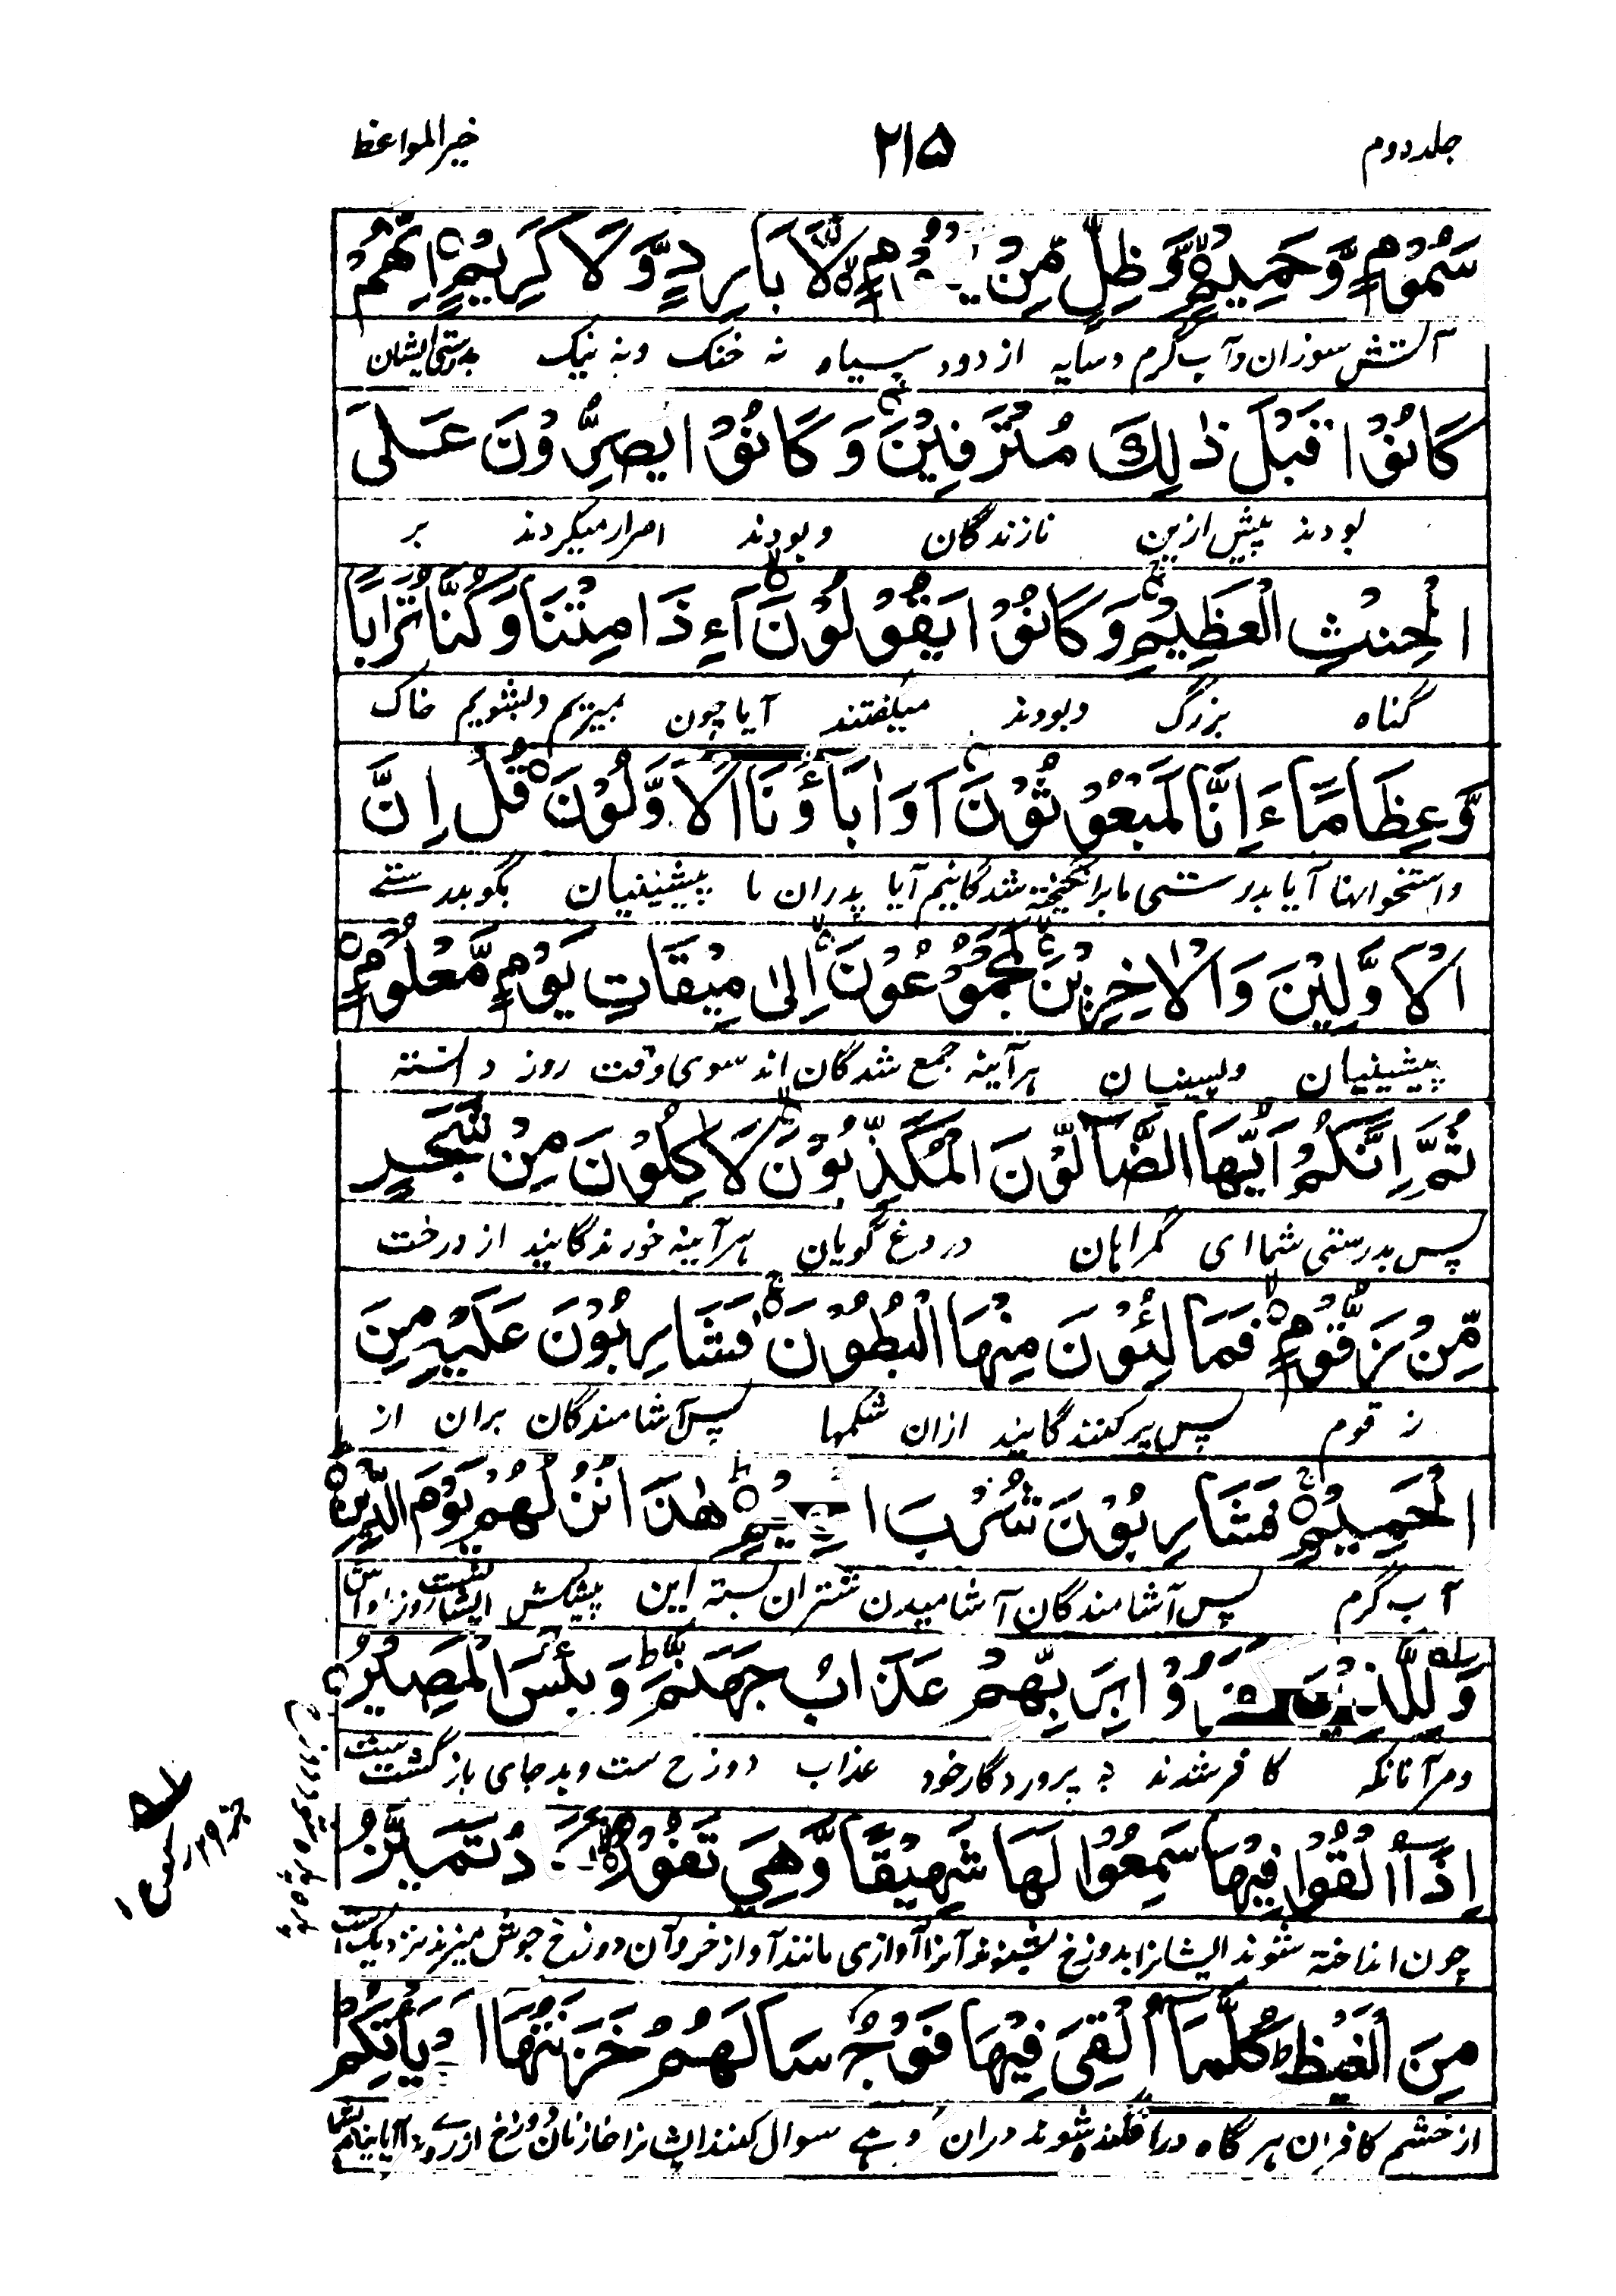 جلد دوم ۲۱۵ خیر المواعظ
سَمُوْمٍ وَّحَمِيْمٍ وَّظِلٍّ مِّنْ لَّا بَارِدٍ وَّلَا كَرِيْمٍ اِنَّهُمْ
آتش سوزان و آب گرم و سایه از دود سیاه نه خنک و نه نیک بدرستی ایشان
كَانُوْا قَبْلَ ذٰلِكَ مُتْرَفِيْنَ وَكَانُوْا يُصِرُّوْنَ عَلَى
بودند پیش ازین نازندگان و بودند اصرار میکردند بر
الْحِنْثِ الْعَظِيْمِ وَكَانُوْا يَقُوْلُوْنَ اَءِذَا مِتْنَا وَكُنَّا تُرَابًا
گناه بزرگ و بودند میگفتند آیا چون بمیریم و بشویم خاک
وَّعِظَامًا ءَاِنَّا لَمَبْعُوْثُوْنَ اَوَاٰبَآؤُنَا الْاَوَّلُوْنَ قُلْ اِنَّ
و استخوانها آیا بدرستی ما برانگیخته شدگانیم آیا پدران ما پیشینیان بگو بدرستے
الْاَوَّلِيْنَ وَالْاٰخِرِيْنَ لَمَجْمُوْعُوْنَ اِلٰى مِيْقَاتِ يَوْمٍ مَّعْلُوْمٍ
پیشینیان و پسینیان هر آینه جمع شدگان اند سوی وقت روز دانسته
ثُمَّ اِنَّكُمْ اَيُّهَا الضَّآلُّوْنَ الْمُكَذِّبُوْنَ لَاٰكِلُوْنَ مِنْ شَجَرٍ
پس بدرستی شما ای گمراهان دروغ گویان هر آینه خورندگانید از درخت
مِّنْ زَقُّوْمٍ فَمَالِئُوْنَ مِنْهَا الْبُطُوْنَ فَشَارِبُوْنَ عَلَيْهِ مِنَ
زقوم پس پر کنندگانید ازان شکمها پس آشامندگان بران از
الْحَمِيْمِ فَشَارِبُوْنَ شُرْبَ الْهِيْمِ هٰذَا نُزُلُهُمْ يَوْمَ الدِّيْنِ
آب گرم پس آشامندگان آشامیدن شتران تشنه این پیشکش ایشان روز
وَلِلَّذِيْنَ كَفَرُوْا بِرَبِّهِمْ عَذَابُ جَهَنَّمَ وَبِئْسَ الْمَصِيْرُ
و مر آنانکه کافر شدند به پروردگار خود عذاب دوزخ ست و بد جای بازگشت ست
اِذَآ اُلْقُوْا فِيْهَا سَمِعُوْا لَهَا شَهِيْقًا وَّهِيَ تَفُوْرُ تَمَيَّزُ
چون انداخته شوند ایشانرا بدوزخ بشنوند آنرا آوازی مانند آواز خر و آن دوزخ جوش میزند نزدیک است
مِنَ الْغَيْظِ كُلَّمَآ اُلْقِيَ فِيْهَا فَوْجٌ سَاَلَهُمْ خَزَنَتُهَا اَ يَاْتِكُمْ
از خشم کافران هر گاه در افگنده شوند دران سوال کنند ایشانرا خازنان دوزخ از
جزو ۲۹ رکوع ۱